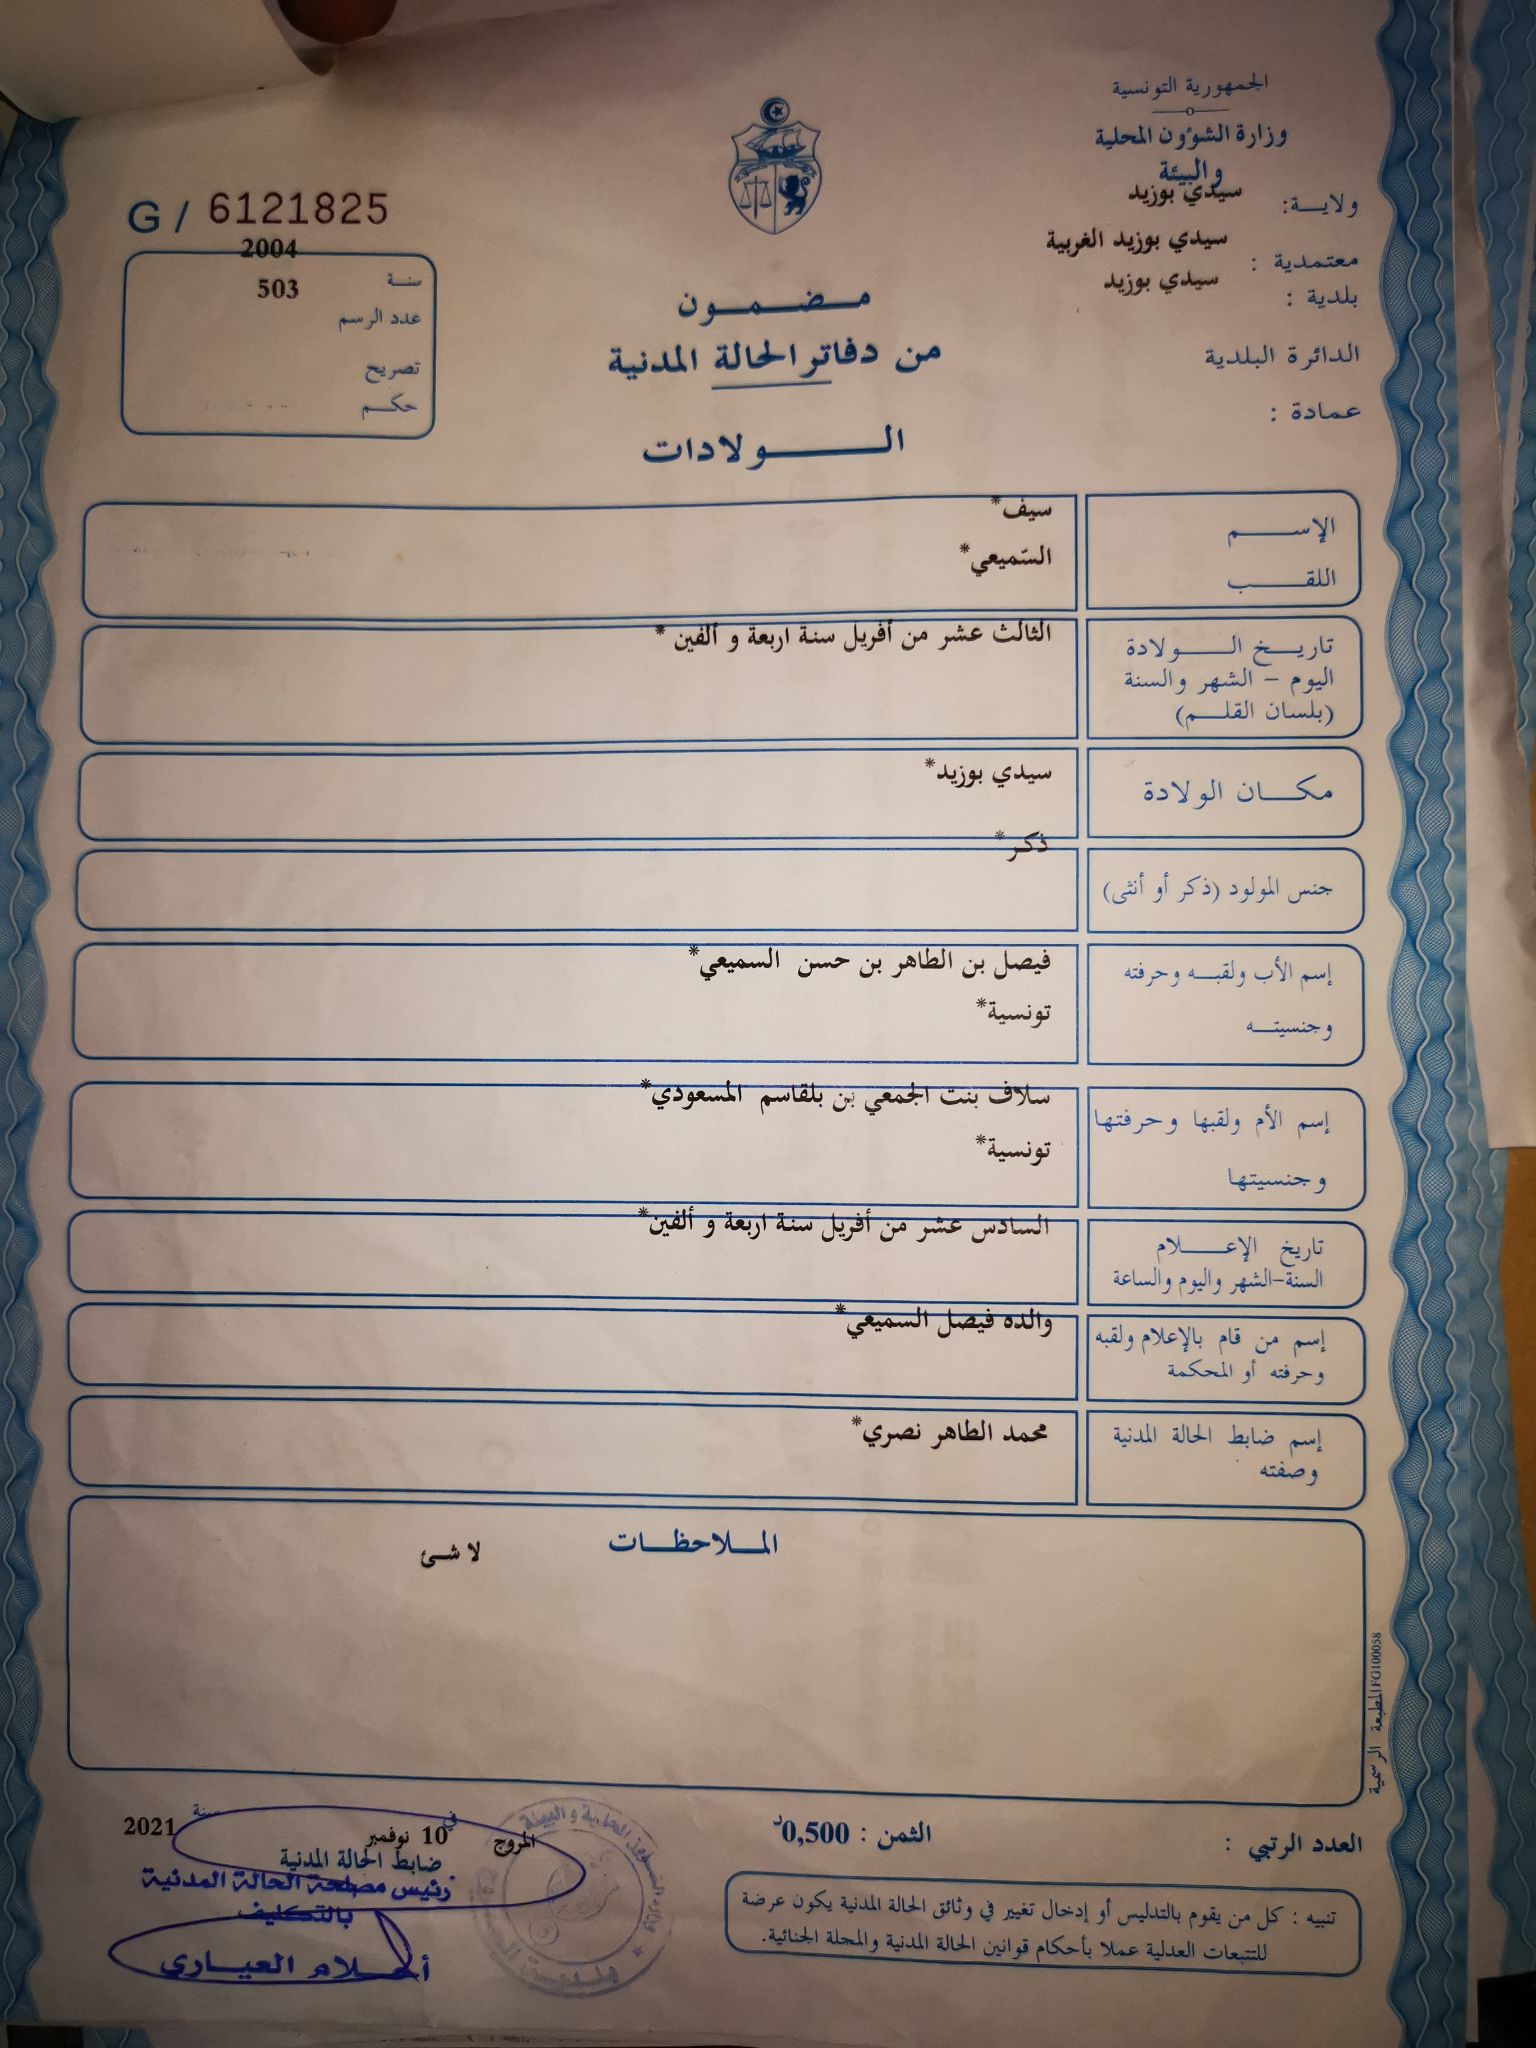 الجمهورية التونسية
وزارة الشؤون المحلية
والبيئة
ولايــة: سيدي بوزيد
معتمدية : سيدي بوزيد الغربية
بلدية : سيدي بوزيد
الدائرة البلدية
عمادة :
G / 6121825
سنة 2004
عدد الرسم 503
تصريح
حكــم
مـضـمــون
من دفاتر الحالة المدنية
الــولادات
الإســـم سيف*
اللقــب السّميعي*
تاريــخ الــولادة
اليوم - الشهر والسنة
(بلسان القلــم)
الثالث عشر من أفريل سنة اربعة و ألفين *
مكــان الولادة سيدي بوزيد*
جنس المولود (ذكر أو أنثى) ذكر*
إسم الأب ولقبــه وحرفته
وجنسيتــه
فيصل بن الطاهر بن حسن السميعي*
تونسية*
إسم الأم ولقبها وحرفتها
وجنسيتها
سلاف بنت الجمعي بن بلقاسم المسعودي*
تونسية*
تاريخ الإعـــلام
السنة-الشهر واليوم والساعة
السادس عشر من أفريل سنة اربعة و ألفين*
إسم من قام بالإعلام ولقبه
وحرفته أو المحكمة
والده فيصل السميعي*
إسم ضابط الحالة المدنية
وصفته
محمد الطاهر نصري*
المــلاحظــات
لا شئ
المطبعة الرسمية FG100058
العدد الرتبي :
الثمن : 0,500د
تنبيه : كل من يقوم بالتدليس أو إدخال تغيير في وثائق الحالة المدنية يكون عرضة
للتتبعات العدلية عملا بأحكام قوانين الحالة المدنية والمجلة الجنائية.
المروج في 10 نوفمبر سنة 2021
ضابط الحالة المدنية
رئيس مصلحة الحالة المدنية
بالتكليف
أحلام العياري